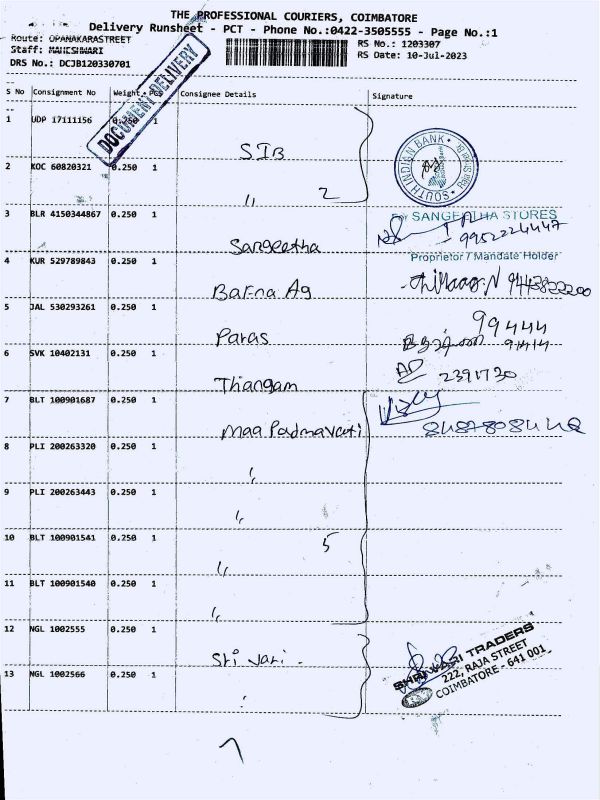 THE PROFESSIONAL COURIERS, COIMBATORE
Delivery Runsheet - PCT - Phone No.:0422-3505555 - Page No.:1
Route: OPANAKARASTREET
RS No.: 1203307
Staff: MAHESHWARI
RS Date: 10-Jul-2023
DRS No.: DCJB120330701
DOCUMENT DELIVERY
S No Consignment No Weight PCS Consignee Details Signature
1 UDP 17111156 0.250 1 SIB
SOUTH INDIAN BANK
2 KOC 60820321 0.250 1 " 2
3 BLR 4150344867 0.250 1 Sangeetha
For SANGEETHA STORES
9952224447
Proprietor / Mandate Holder
4 KUR 529789843 0.250 1 Barna Ag
5 JAL 530293261 0.250 1 Paras
99444
6 SVK 10402131 0.250 1 Thangam
2391730
7 BLT 100901687 0.250 1 Maa Padmavati
8 PLI 200263320 0.250 1 "
9 PLI 200263443 0.250 1 "
10 BLT 100901541 0.250 1 " 5
11 BLT 100901540 0.250 1 "
12 NGL 1002555 0.250 1 Sri Vari
13 NGL 1002566 0.250 1 "
SHRI VARI TRADERS
222, RAJA STREET
COIMBATORE - 641 001